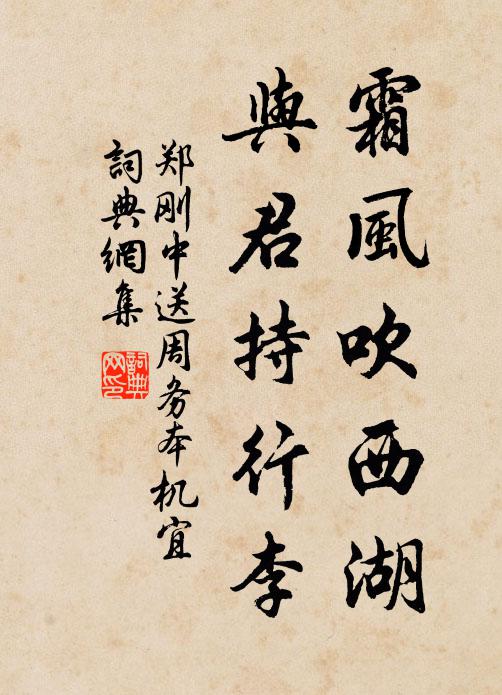 霜風吹西湖
與君持行李
郑刚中送周务本机宜
詞典網集
詞典网印